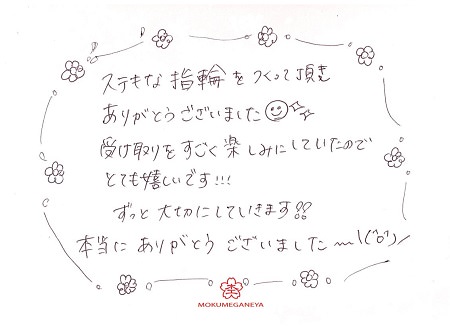 ステキな指輪をつくって頂き
ありがとうございました
受け取りをすごく楽しみにしていたので
とても嬉しいです!!!
ずっと大切にしていきます!!
本当にありがとうございました〜\(^o^)/
MOKUMEGANEYA